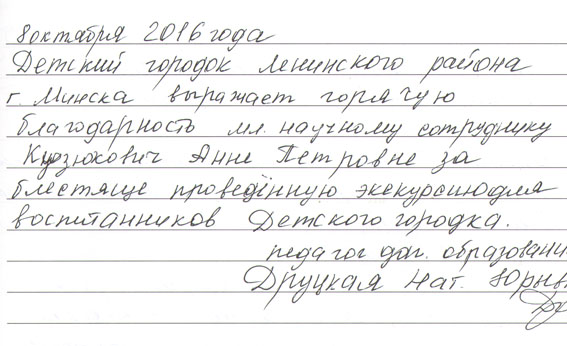 8 октября 2016 года
Детский городок Ленинского района
г. Минска выражает горячую
благодарность мл. научному сотруднику
Кудзюкович Анне Петровне за
блестяще проведённую экскурсию для
воспитанников Детского городка.
педагог доп. образовани
Друцкая Нат. Юрьев